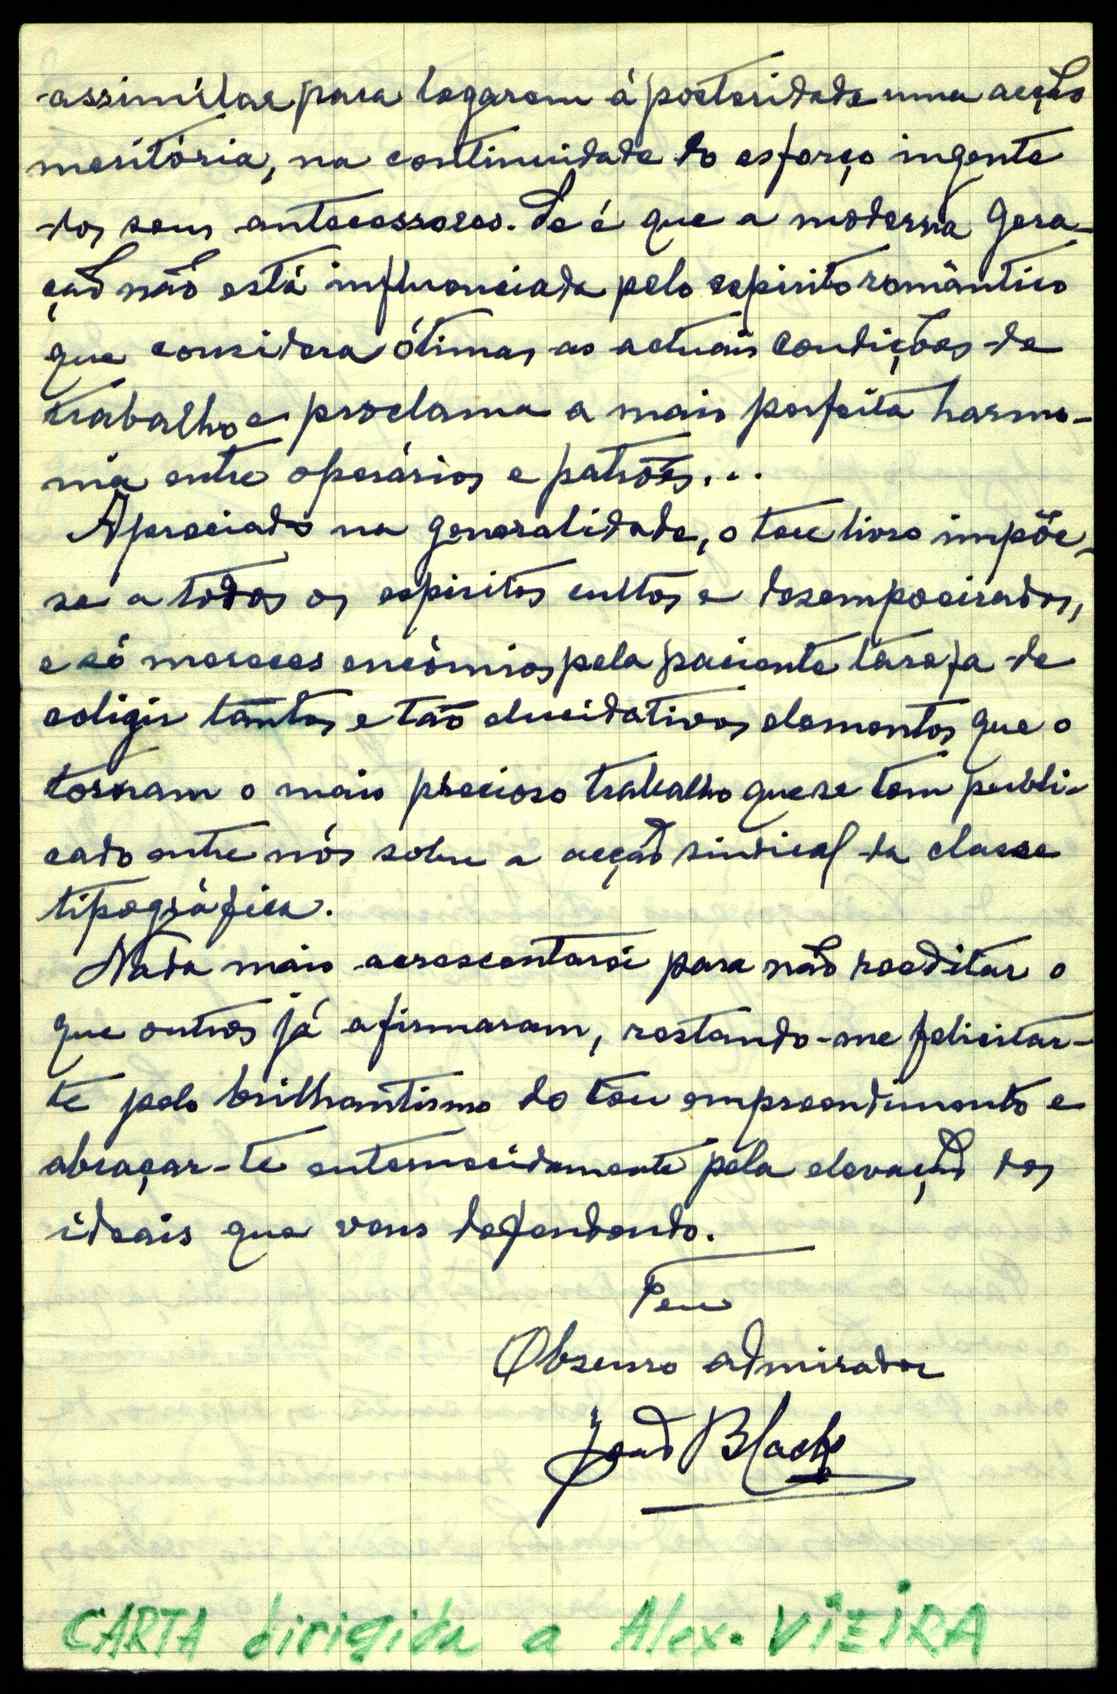 assimilar para legarem á posteridade uma acção
meritória, na continuidade do esforço ingente
dos seus antecessores. Se é que a moderna gera-
ção não está influenciada pelo espirito romântico
que considera ótimas as actuais condições de
trabalho e proclama a mais perfeita harmo-
nia entre operários e patrões...
Apreciado na generalidade, o teu livro impõe-
se a todos os espiritos cultos e desempoeirados,
e só mereces encómios pela paciente tarefa de
coligir tantos e tão elucidativos elementos que o
tornam o mais precioso trabalho que se tem publi-
cado entre nós sobre a acção sindical da classe
tipográfica.
Nada mais acrescentarei para não reeditar o
que outros já afirmaram, restando-me felicitar-
te pelo brilhantismo do teu empreendimento e
abraçar-te enternecidamente pela elevação dos
ideais que vens defendendo.
Teu
Obscuro admirador
João Black
CARTA dirigida a Alex. VIEIRA